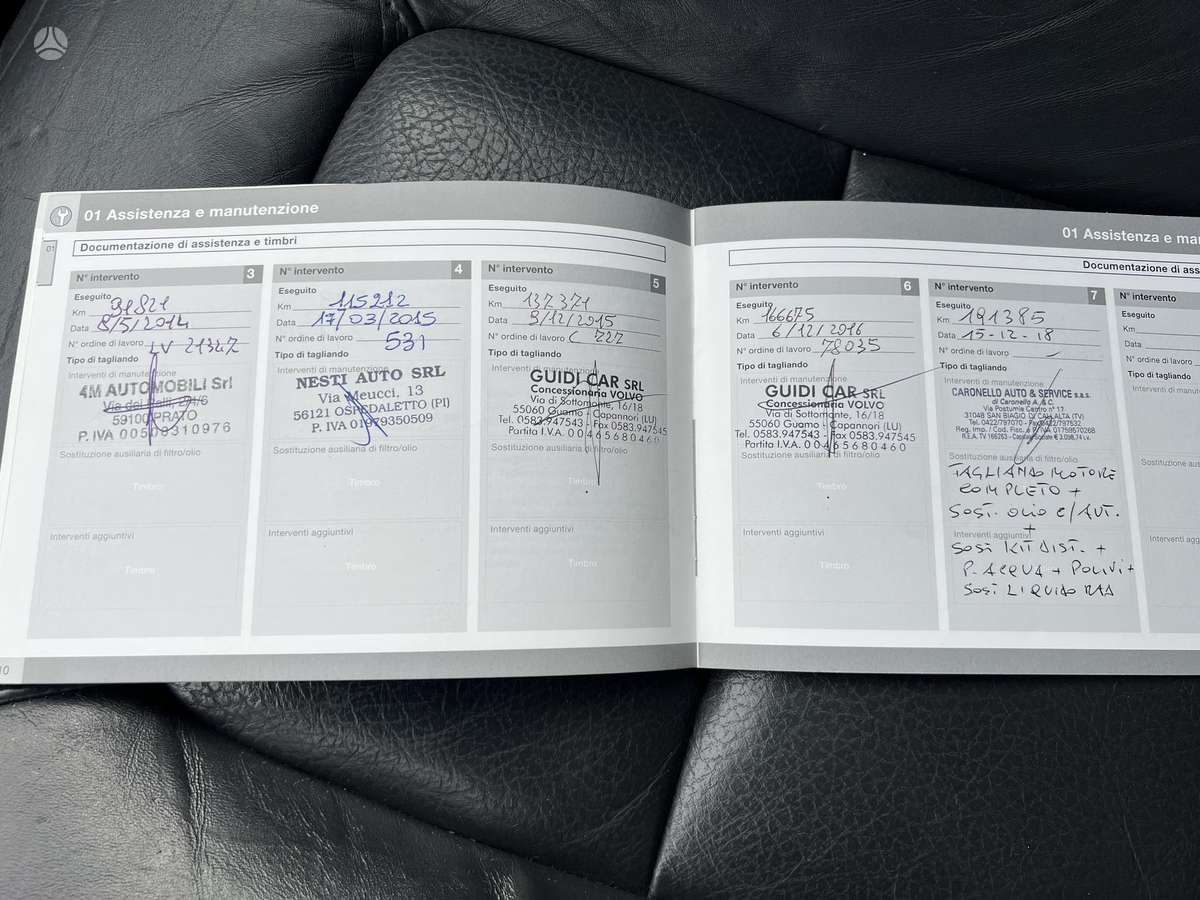 01 Assistenza e manutenzione
01
Documentazione di assistenza e timbri
N° intervento 3
Eseguito
Km 91821
Data 8/5/2014
N° ordine di lavoro LV 21347
Tipo di tagliando
Interventi di manutenzione
4M AUTOMOBILI Srl
PRATO
P. IVA 00508310976
Sostituzione ausiliaria di filtro/olio
Timbro
Interventi aggiuntivi
Timbro
N° intervento 4
Eseguito
Km 115212
Data 17/03/2015
N° ordine di lavoro 531
Tipo di tagliando
Interventi di manutenzione
NESTI AUTO SRL
Via Meucci, 13
56121 OSPEDALETTO (PI)
P. IVA 01979350509
Sostituzione ausiliaria di filtro/olio
Timbro
Interventi aggiuntivi
Timbro
N° intervento 5
Eseguito
Km 137371
Data 9/12/2015
N° ordine di lavoro C 227
Tipo di tagliando
Interventi di manutenzione
GUIDI CAR SRL
Concessionaria VOLVO
Via di Sottomonte, 16/18
55060 Guamo - Capannori (LU)
Tel. 0583.947543 - Fax 0583.947545
Partita I.V.A. 00465680460
Sostituzione ausiliaria di filtro/olio
Timbro
Interventi aggiuntivi
Timbro
10
01 Assistenza e ma
Documentazione di ass
N° intervento 6
Eseguito
Km 166675
Data 6/12/2016
N° ordine di lavoro 78035
Tipo di tagliando
Interventi di manutenzione
GUIDI CAR SRL
Concessionaria VOLVO
Via di Sottomonte, 16/18
55060 Guamo - Capannori (LU)
Tel. 0583.947543 - Fax 0583.947545
Partita I.V.A. 00465680460
Sostituzione ausiliaria di filtro/olio
Timbro
Interventi aggiuntivi
Timbro
N° intervento 7
Eseguito
Km 191385
Data 15-12-18
N° ordine di lavoro -
Tipo di tagliando
Interventi di manutenzione
CARONELLO AUTO & SERVICE s.a.s.
di Caronello A. & C.
Via Postumia Centro n° 17
31048 SAN BIAGIO DI CALLALTA (TV)
Tel. 0422/797070 - Fax 0422/797532
Reg. Imp. / Cod. Fisc. e P. IVA 01759570268
R.E.A. TV 166263 - Capitale Sociale € 3.098,74 i.v.
Sostituzione ausiliaria di filtro/olio
TAGLIANDO MOTORE
COMPLETO +
SOST. OLIO C/AUT.
+
Interventi aggiuntivi
SOST KIT DIST. +
P. ACQUA + POLIVI +
SOST LIQUIDO RAD
N° intervento
Eseguito
Km
Data
N° ordine di lavoro
Tipo di tagliando
Interventi di manut
Sostituzione ausilia
Interventi agg